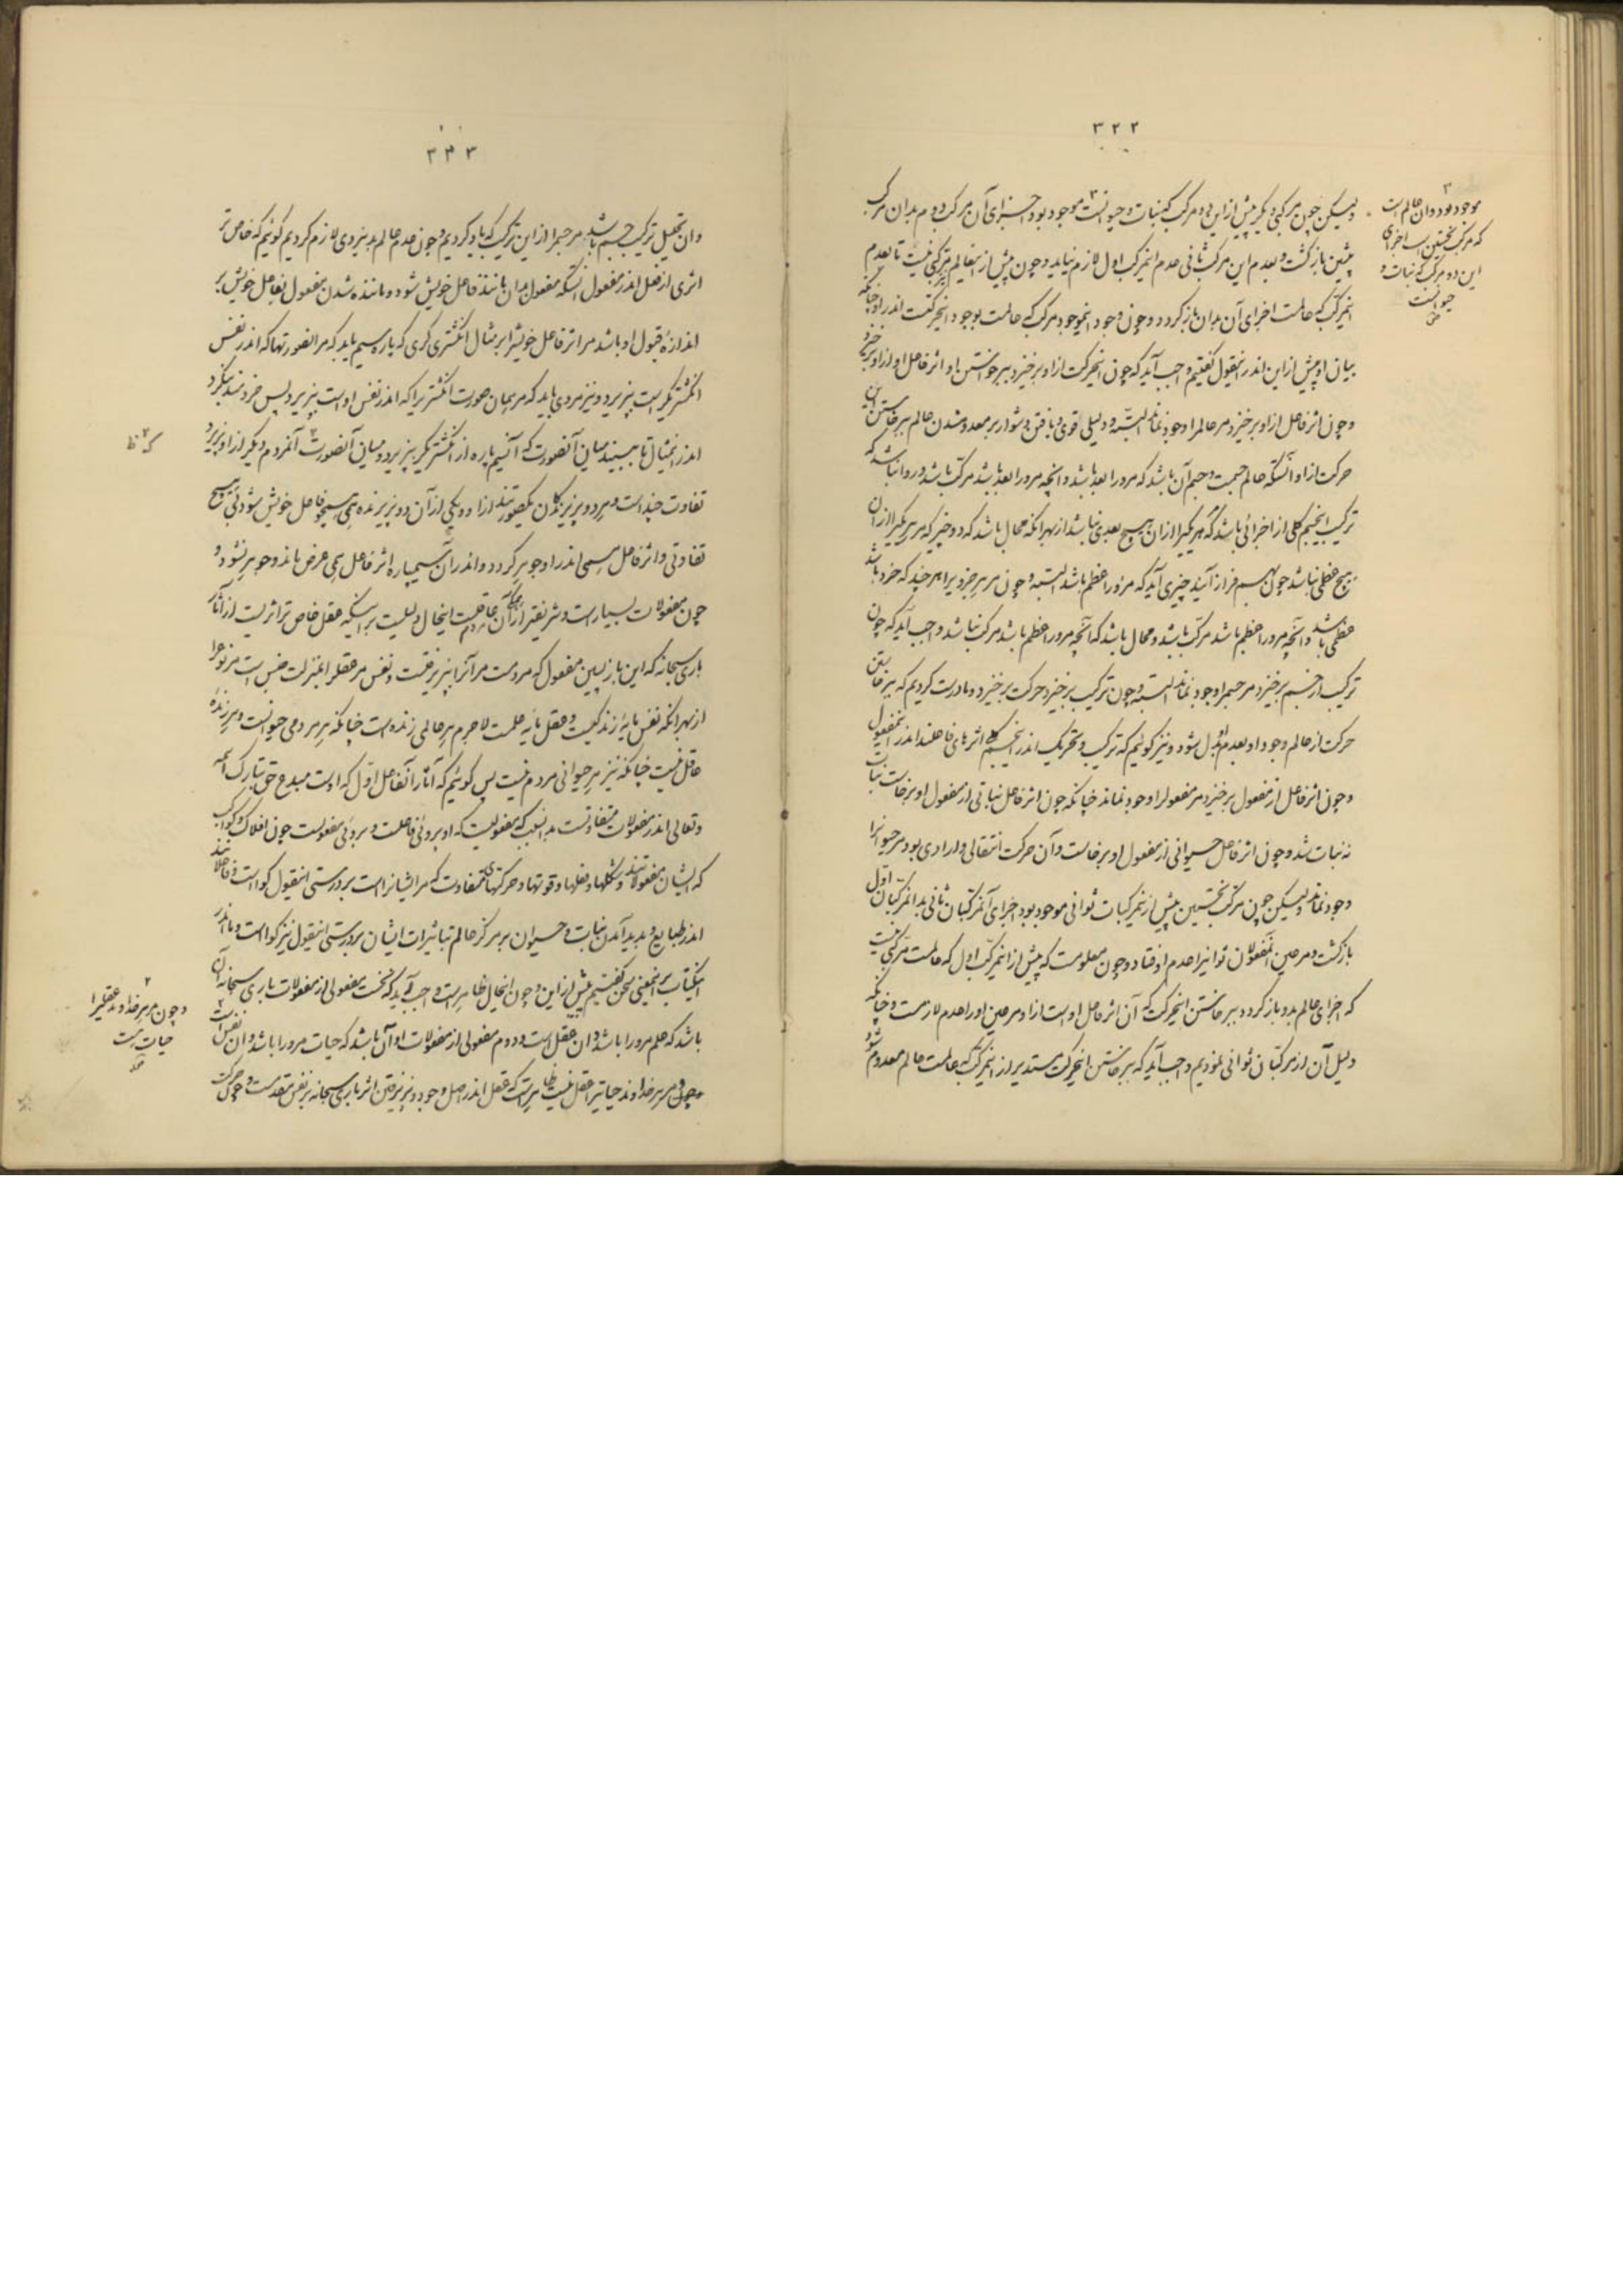 ۳۲۲
ولیکن چون مرکبی دیگر پیش از این دو مرکب که نبات و حیوانست موجود بود اجزای آن مرکب دوم بدان مرکب
پیشین بازگشت و بعدم این مرکب ثانی عدم آنمرکب اول لازم نیاید و چون پیش از اینعالم مرکبی نیست تا بعدم
اینمرکب که عالمست اجزای آن بدان بازگردد و چون وجود اینموجود مرکب که عالمست بوجود اینحرکتست اندر او چنانکه
بیان او پیش از این اندر اینقول گفتیم واجب آید که چون اینحرکت از او برخیزد ببرخاستن او اثر فاعل او از او برخیزد
و چون اثر فاعل از او برخیزد مر عالم را وجود نماند البته و دلیلی قوی و یافتن دشوار بر معدوم شدن عالم ببرخاستن این
حرکت از او آنستکه عالم جسمست و جسم آن باشد که مرو را بعد باشد و آنچه مرو را بعد باشد مرکب باشد و روا نباشد که
ترکیب اینجسم کلی از اجزائی باشد که هر یکیرا از آن هیچ بعدی نباشد از بهر آنکه محال باشد که دو چیز که مر هر یکیرا از آن
هیچ عظمی نباشد چون بهم فراز آیند چیزی آید که مرورا عظم باشد البته و چون مر هر جزویرا هر چند که خرد باشد
عظمی باشد و آنچه مرورا عظم باشد مرکب باشد و محال باشد که آنچه مرورا عظم باشد مرکب نباشد واجب آید که چون
ترکیب از جسم برخیزد مر جسم را وجود نماند البته و چون ترکیب برخیزد حرکت برخیزد و ما درست کردیم که ببرخاستن
حرکت از عالم وجود او بعدم بدل شود و نیز گوئیم که ترکیب و تحریک اندر اینجسم کلی اثرهای فاعلند اندر اینمفعول
و چون اثر فاعل از مفعول برخیزد مر مفعول را وجود نماند چنانکه چون اثر فاعل نباتی از مفعول او برخاست نبات
نه نبات شد و چون اثر فاعل حیوانی از مفعول او برخاست و آن حرکت انتقالی و ارادی بود مر حیوانرا
وجود نماند ولیکن چون مرکب نخستین پیش از این مرکبات ثوانی موجود بود اجزای آنمرکبان ثانی بدانمرکبان اول
بازگشت و مر عین آنمفعولان ثوانیرا عدم اوفتاد و چون معلومست که پیش از اینمرکب اول که عالمست مرکبی نیست
که اجزای عالم بدو بازگردد ببرخاستن اینحرکت که آن اثر فاعل اوست از او مر عین او را عدم لازمست و چنانکه
دلیل آن از مرکبان ثوانی نمودیم واجب آید که ببرخاستن اینحرکت مستدیر از اینمرکب که عالمست عالم معدوم شود
موجود بود و ان عالم است
که مرکب نخستین است اجزای
این دو مرکب که نبات و
حیوانست
صح
۳۲۳
و ان تحلیل ترکیب جسم باشد مر جسم را از این ترکیب که یاد کردیم و چون عدم عالم بدینروی لازم کردیم گوئیم که خاص تر
اثری از فعل اندر مفعول آنستکه مفعول بدان ماننده فاعل خویش شود و ماننده شدن مفعول بفاعل خویش بر
اندازه قبول او باشد مر اثر فاعل خویشرا بر مثال انگشتری گری که پاره سیم یابد که مر انصورتها که اندر نفس
انگشتریگر است بپذیرد و نیز مردی یابد که مر همان صورت انگشتریرا که اندر نفس او است بپذیرد پس خردمند بنگرد
اندر اینمثال تا ببیند میان آنصورت که آنسیم پاره از انگشتریگر بپذیرد و میان آنصورت آنمردم دیگر از او پذیرد
تفاوت چند است و هر دو پذیرندگان یکصورتند از او و یکی از آن دو پذیرنده همی همچو فاعل خویش شود بی هیچ
تفاوتی و اثر فاعل همی اندر او جوهر گردد و اندر ان سیم پاره اثر فاعل همی عرض ماند و جوهر نشود و
چون مفعولات بسیار است و شریفتر از آن عاقلست اینحال دلیلست بر آنکه عقل خاص تر اثریست از آثار
باری سبحانه که این بازپسین مفعول که مردمست مر آنرا بپذیرفتست و نفس مر عقل را بمنزلت جنس است مر نوع را
از بهر آنکه نفس مایه زندگیست و عقل مایه علمست لاجرم هر عالمی زنده است چنانکه هر مردمی حیوانست و هر زنده
عاقل نیست چنانکه نیز هر حیوانی مردم نیست پس گوئیم که آثار آنفاعل اول که اوست مبدع حق تبارک اسمه
و تعالی اندر مفعولات متفاوتست بدانسبب که مفعولیست که او بروئی فاعلست و بروئی مفعولست چون افلاک و کواکب
که ایشان مفعولانند و شکلها و فعلها و قوتها و حرکتهای متفاوت که مر ایشانراست بر درستی اینقول گواست و فاعلانند
اندر طبایع و پدید آمدن نبات و حیوان بر مرکز عالم بتاثیرات ایشان بر درستی اینقول نیز گواست و ما اندر
اینکتاب بر اینمعنی سخن گفتیم پیش از این و چون اینحال ظاهر است واجب آید که نخست مفعولی از مفعولات باری سبحانه آن
باشد که علم مرورا باشد و ان عقل است و دوم مفعولی از مفعولات او آن باشد که حیات مرورا باشد و ان نفس است
و چون مر هر خداوند حیاتیرا عقل نیست ظاهر است که عقل اندر اصل وجود و پذیرفتن اثر باری سبحانه بر نفس مقدمست و چون حرکت
که ظ
و چون مر هر خداوند عقلیرا
حیات است
صح